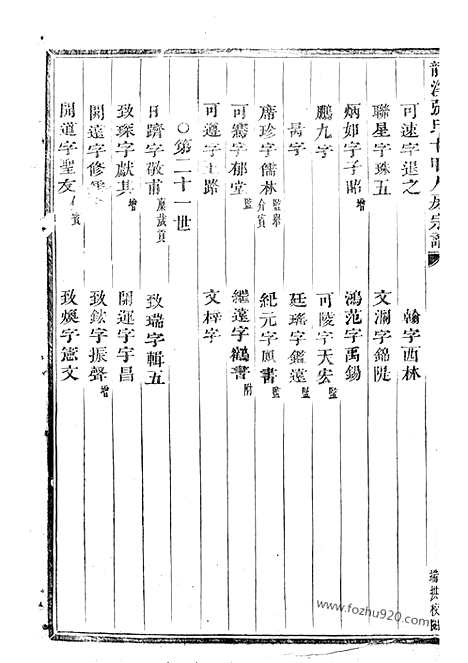 可速字退之
翰字西林
聯星字珠五
文瀾字錦陡
炳如字子
鴻范字禹錫
鵬九字
可陵字天宏 監
字
廷瑤字鑑遠 監
席珍字儒林 監舉介賓
紀元字鳳書 監
可鑄字郁堂 監
繼遠字鶴書 附
可遵字王路
文梓字
○第二十一世
日躋字敬甫 廩歲貢
致瑞字輯五
致琛字獻其 增
開運字宇昌
開遠字修
致鋐字振聲 增
開道字聖友 賓
致煥字憲文
www.fozhu920.com